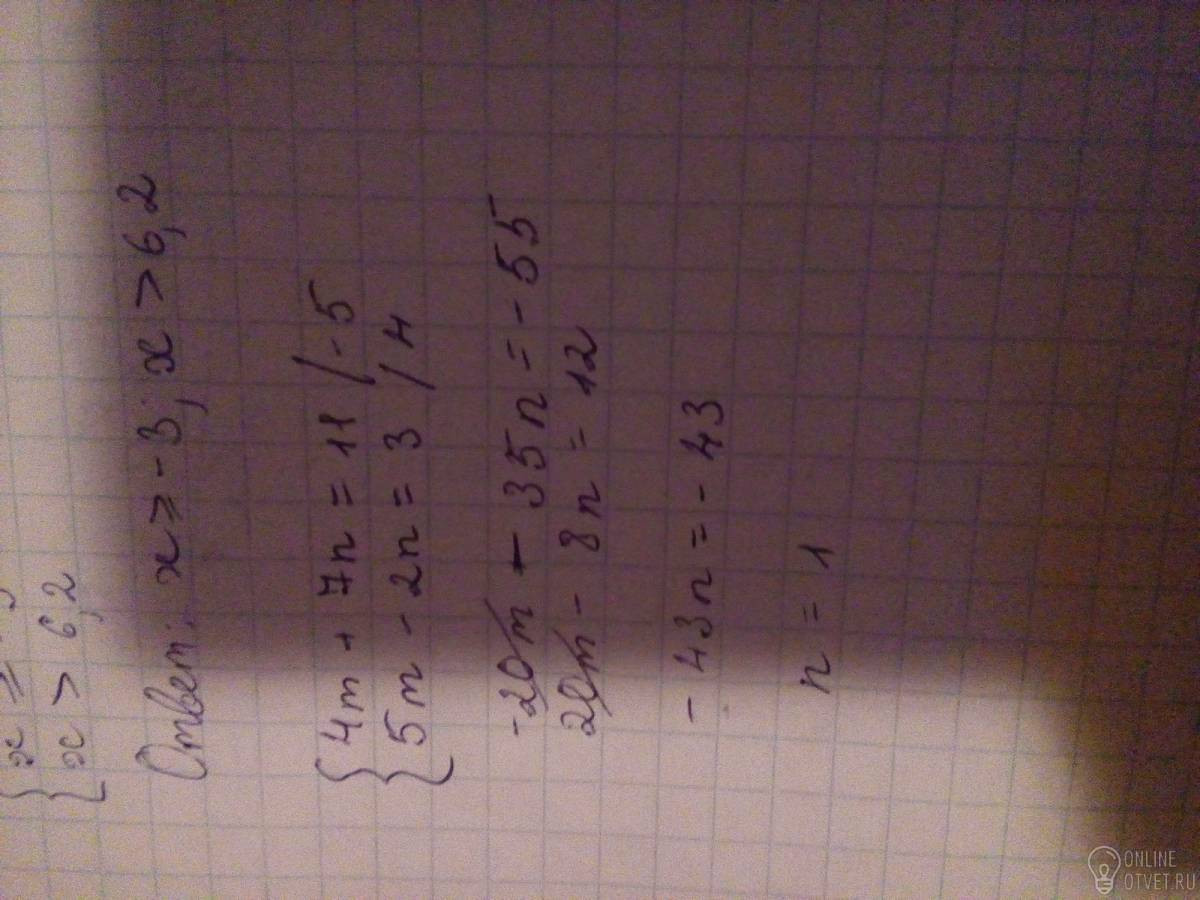 x ≥
x > 6,2
Ответ: x ≥ -3; x > 6,2
4m + 7n = 11 / -5
5m - 2n = 3 / 4
-20m - 35n = -55
20m - 8n = 12
- 43n = - 43
n = 1
ONLINE
OTVET.RU